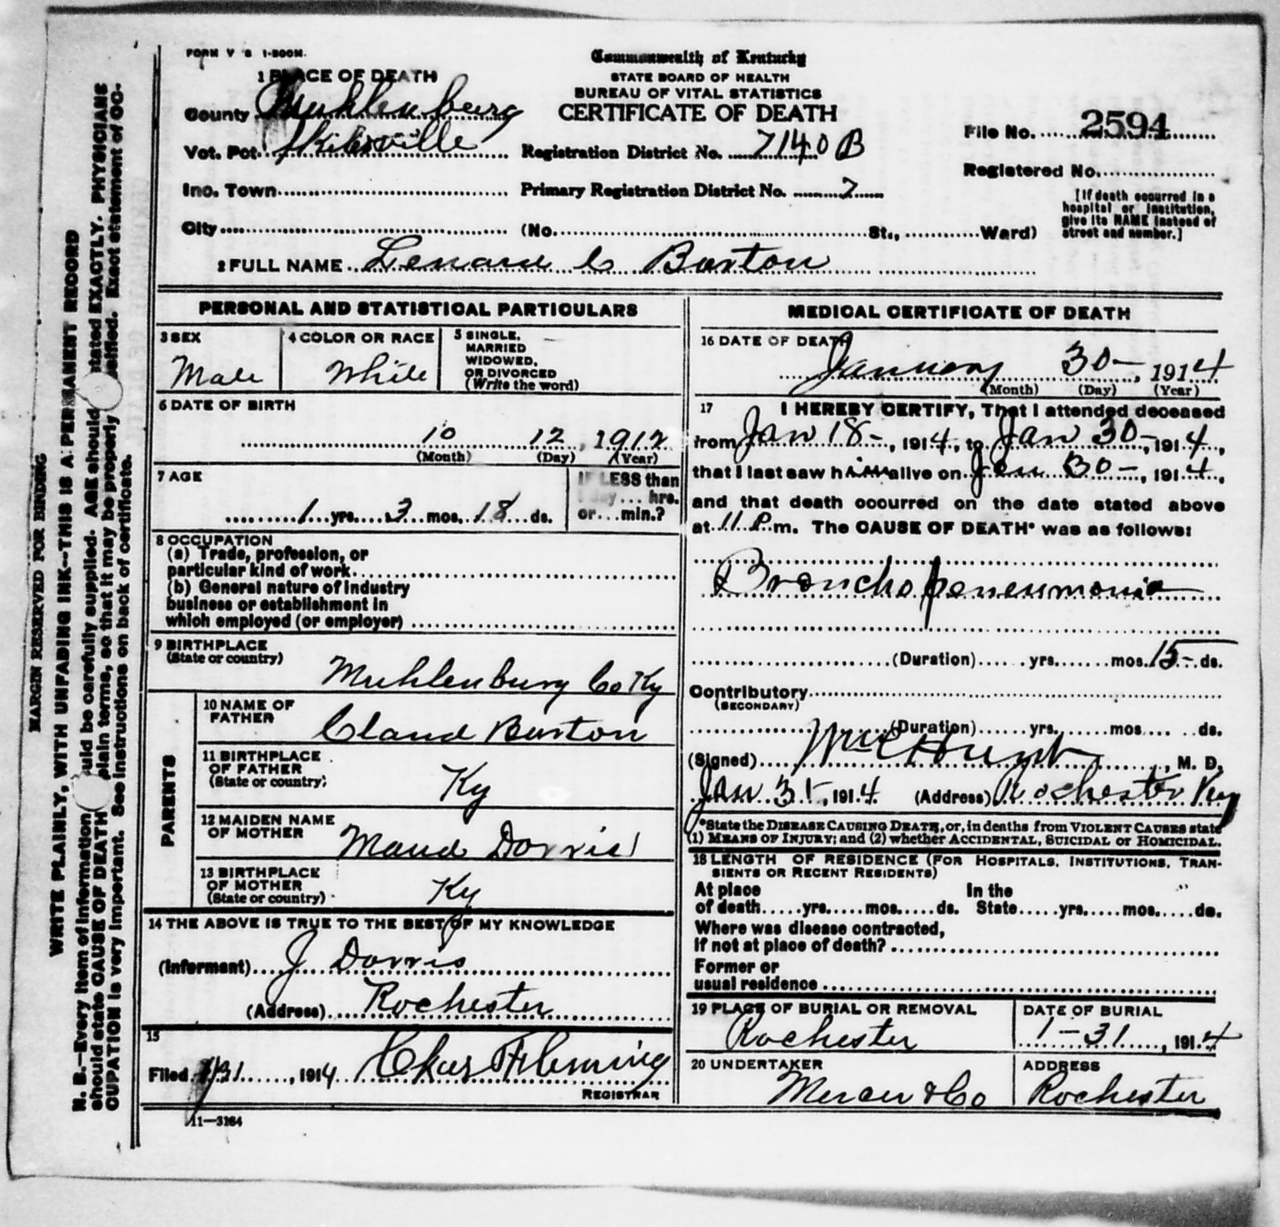 FORM V S 1-500M.
Commonwealth of Kentucky
STATE BOARD OF HEALTH
BUREAU OF VITAL STATISTICS
CERTIFICATE OF DEATH
1 PLACE OF DEATH
County Muhlenburg
Vot. Pct. Skilesville
Registration District No. 7140 B
File No. 2594
Registered No.
Inc. Town
Primary Registration District No. 7
[If death occurred in a hospital or institution, give its NAME instead of street and number.]
City (No. St., Ward)
2 FULL NAME Lenard C Barton
PERSONAL AND STATISTICAL PARTICULARS
3 SEX Male
4 COLOR OR RACE White
5 SINGLE, MARRIED WIDOWED, OR DIVORCED (Write the word)
6 DATE OF BIRTH
10 12, 1912
(Month) (Day) (Year)
7 AGE
1 yrs. 3 mos. 18 ds.
IF LESS than 1 day... hrs. or... min.?
8 OCCUPATION
(a) Trade, profession, or
particular kind of work
(b) General nature of industry
business or establishment in
which employed (or employer)
9 BIRTHPLACE
(State or country) Muhlenburg Co Ky
PARENTS
10 NAME OF FATHER Claud Barton
11 BIRTHPLACE OF FATHER (State or country) Ky
12 MAIDEN NAME OF MOTHER Maud Dorris
13 BIRTHPLACE OF MOTHER (State or country) Ky
14 THE ABOVE IS TRUE TO THE BEST OF MY KNOWLEDGE
(Informant) J Dorris
(Address) Rochester
15
Filed 1/31, 1914 Chas Fleming
REGISTRAR
11—3184
MEDICAL CERTIFICATE OF DEATH
16 DATE OF DEATH
January 30, 1914
(Month) (Day) (Year)
17 I HEREBY CERTIFY, That I attended deceased
from Jan 18, 1914, to Jan 30, 1914,
that I last saw him alive on Jan 30, 1914,
and that death occurred on the date stated above
at 11 P.m. The CAUSE OF DEATH* was as follows:
Broncho peneumonia
(Duration) yrs. mos. 15 ds.
Contributory
(SECONDARY)
(Duration) yrs. mos. ds.
(Signed) Hunt, M. D.
Jan 31, 1914 (Address) Rochester Ky
*State the DISEASE CAUSING DEATH, or, in deaths from VIOLENT CAUSES state
(1) MEANS OF INJURY; and (2) whether ACCIDENTAL, SUICIDAL or HOMICIDAL.
18 LENGTH OF RESIDENCE (FOR HOSPITALS, INSTITUTIONS, TRAN-
SIENTS OR RECENT RESIDENTS)
At place of death yrs. mos. ds. In the State yrs. mos. ds.
Where was disease contracted,
if not at place of death?
Former or
usual residence
19 PLACE OF BURIAL OR REMOVAL Rochester
DATE OF BURIAL 1-31, 1914
20 UNDERTAKER Mercer & Co
ADDRESS Rochester
MARGIN RESERVED FOR BINDING
WRITE PLAINLY, WITH UNFADING INK—THIS IS A PERMANENT RECORD
N. B.—Every item of information should be carefully supplied. AGE should stated EXACTLY. PHYSICIANS
should state CAUSE OF DEATH plain terms, so that it may be properly classified. Exact statement of OC-
CUPATION is very important. See instructions on back of certificate.